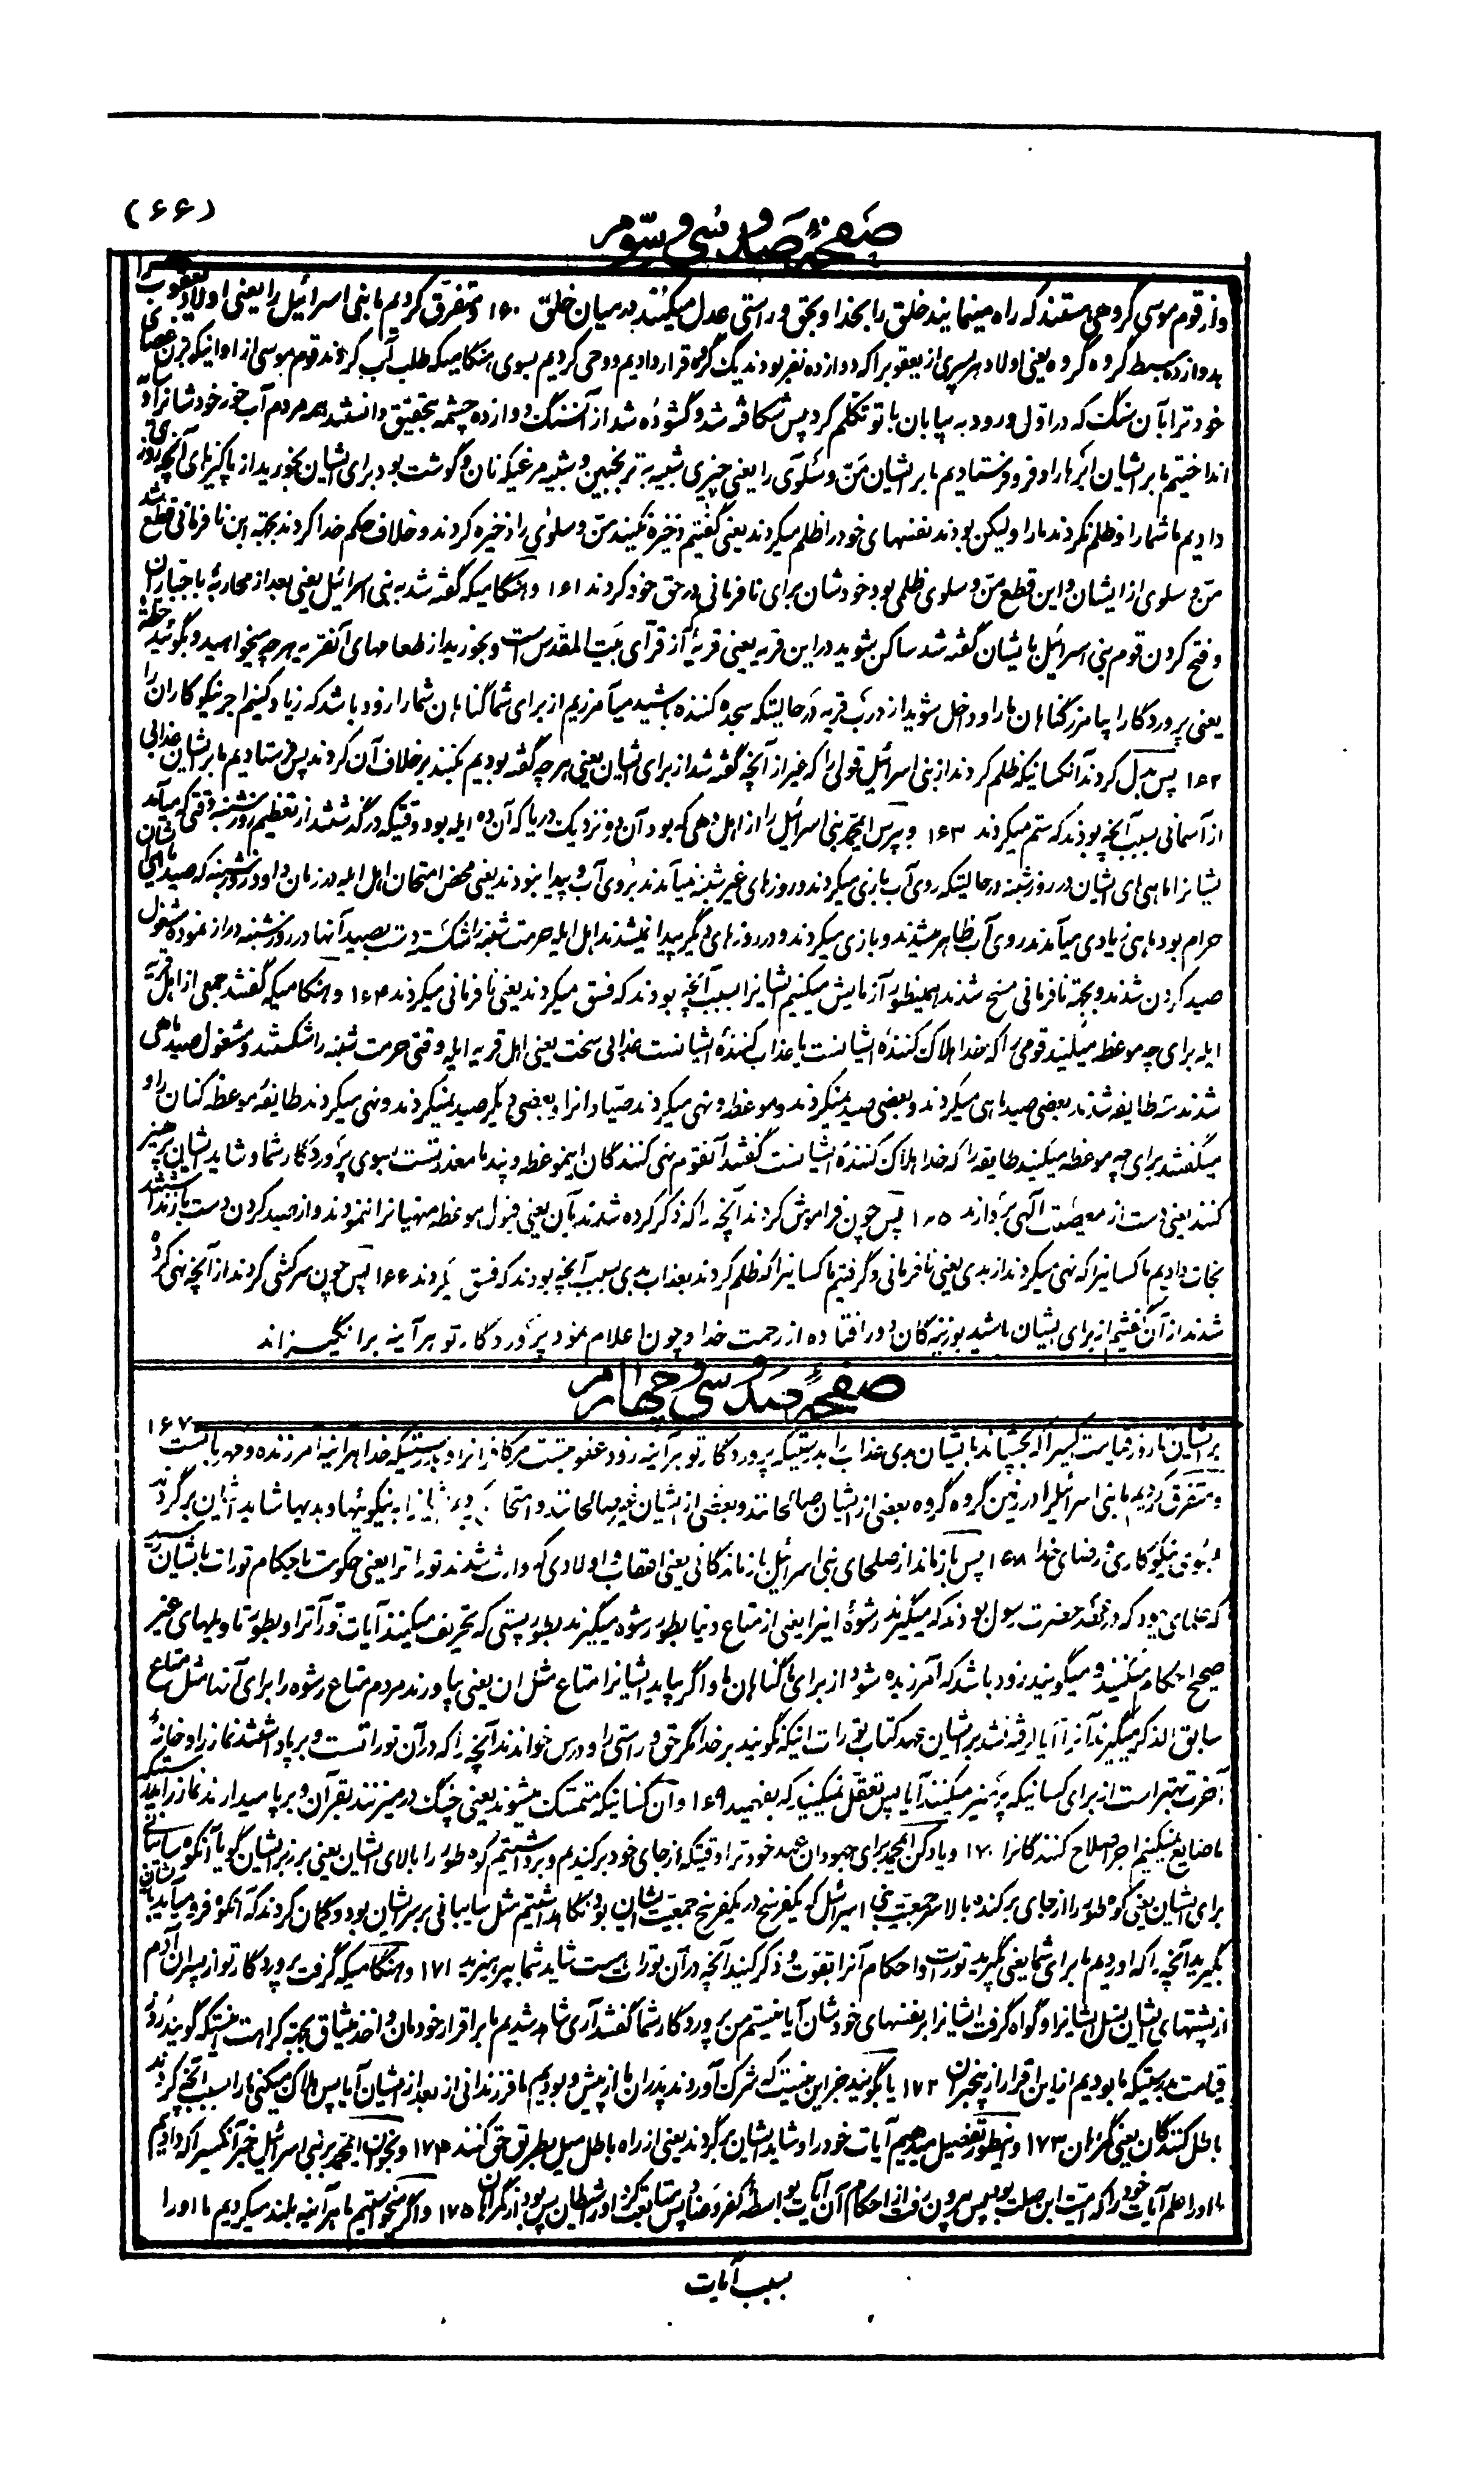 (۶۶)
صفحهٔ صد و سی و سوم
واز قوم موسی گروهی هستند که راه مینمایند خلق را بخدا و بحق و راستی عدل میکنند در میان خلق ۱۶۰ و متفرق کردیم ما بنی اسرائیل را یعنی اولاد یعقوب را
بدوازده سبط گروه گروه یعنی اولاد هر پسری از یعقوب را که دوازده نفر بودند یک گروه قرار دادیم و وحی کردیم بسوی هنگامیکه طلب آب کردند قوم موسی از او اینکه بزن عصای
خود ترا بآن سنگ که در اول ورود به بیابان با تو تکلم کرد پس شکافته شد و گشوده شد از آنسنگ دوازده چشمه بتحقیق دانستند همه مردم آب خور خودشانرا و
انداختیم ما بر ایشان ابر ها را و فرو فرستادیم ما بر ایشان من و سلوی را یعنی چیزی شبیه به ترنجبین و شبیه مرغیکه نان و گوشت بود برای ایشان بخورید از پاکیزهای آنچه روزی
دادیم ما شما را و ظلم نکردند ما را ولیکن بودند نفسهای خود را ظلم میکردند یعنی گفتیم ذخیره نکنید من و سلوی را ذخیره کردند و خلاف حکم خدا کردند بجهته این نافرمانی قطع شد
من و سلوی از ایشان و این قطع من و سلوی ظلمی بود خودشان برای نافرمانی در حق خود کردند ۱۶۱ و هنگامیکه گفته شد به بنی اسرائیل یعنی بعد از محاربهٔ با جباران
و فتح کردن قوم بنی اسرائیل بایشان گفته شد ساکن بشوید در این قریه یعنی قریهٔ از قرآی بیت المقدس است و بخورید از طعامهای آنقریه هر چه میخواهید و بگوئید حطة
یعنی پروردگارا بیامرز گناهان ما را و داخل شوید از درب قریه در حالیتکه سجده کننده باشید میآمرزیم از برای شما گناهان شما را زود باشد که زیاد کنیم اجر نیکوکاران را
۱۶۲ پس بدل کردند آنکسانیکه ظلم کردند از بنی اسرائیل قولی را که غیر از آنچه گفته شد از برای ایشان یعنی هر چه گفته بودیم بکنند برخلاف آن کردند پس فرستادیم ما بر ایشان عذابی
از آسمانی بسبب آنچه بودند که ستم میکردند ۱۶۳ و بپرس ایمحمد بنی اسرائیل را از اهل دهی که بود آن ده نزدیک دریا که آن ده ایله بود وقتیکه در گذشتند از تعظیم روز شنبه وقتی که میآمد
ایشانرا ماهی های ایشان در روز شنبه در حالیتکه روی آب بازی میکردند و روزهای غیر شنبه نمیآمدند بروی آب و پیدا نبودند یعنی محض امتحان اهل ایله در زمان داود در روز شنبه که صید ماهی
حرام بود ماهی زیادی میآمدند روی آب ظاهر میشدند و بازی میکردند و در روزهای دیگر پیدا نمیشدند اهل ایله حرمت شنبه را شکسته دست بصید آنها در روز شنبه دراز نموده مشغول
صید کردن شدند و بجهته نافرمانی مسخ شدند همینطور آزمایش میکنیم ایشانرا بسبب آنچه بودند که فسق میکردند یعنی نافرمانی میکردند ۱۶۴ و هنگامیکه گفتند جمعی از اهل قریهٔ
ایله برای چه موعظه میکنید قومی را که خدا هلاک کنندهٔ ایشانست یا عذاب کنندهٔ ایشانست عذابی سخت یعنی اهل قریه ایله وقتی حرمت شنبه را شکستند و مشغول صید ماهی
شدند سه طایفه شدند بعضی صید ماهی میکردند و بعضی صید نمیکردند و موعظه و نهی میکردند صیادانرا و بعضی دیگر صید نمیکردند و نهی میکردند طایفهٔ موعظه کنان را و
میگفتند برای چه موعظه میکنید طایفه را که خدا هلاک کنندهٔ ایشانست گفتند آنقوم نهی کنندگان اینموعظه و پند ما معذرتست بسوی پروردگار شما و شاید ایشان پرهیز
کنند یعنی دست از معصیت الهی بردارند ۱۶۵ پس چون فراموش کردند آنچه را که ذکر کرده شدند بآن یعنی قبول موعظه مهنیانرا ننمودند و از صید کردن دست باز نداشتند
نجات دادیم ما کسانیرا که نهی میکردند از بدی یعنی نافرمانی و گرفتیم ما کسانیرا که ظلم کردند بعذاب بدی بسبب آنچه بودند که فسق میکردند ۱۶۶ پس چون سرکشی کردند از آنچه نهی کرده
شدند از آن گفتیم از برای ایشان باشید بوزینه گان دور افتاده از رحمت خدا و چون اعلام نمود پروردگار تو هر آینه برانگیزاند
صفحهٔ صد و سی و چهارم
بر ایشان تا روز قیامت کسیرا که بچشاند بایشان بدی عذاب را بدرستیکه پروردگار تو هر آینه زود عقوبتست مر کافرانرا و بدرستیکه خدا هر آینه امرزنده و مهربانست ۱۶۷
و متفرق کردیم ما بنی اسرائیل را در زمین گروه گروه بعضی از ایشان صالحانند و بعضی از ایشان غیر صالحانند و امتحان کردیم ایشانرا به نیکوئیها و بدیها شاید ایشان برگردند
بسوی نیکوکاری و رضای خدا ۱۶۸ پس بازماند از صلحای بنی اسرائیل بازماندگانی یعنی اعقاب و اولادی که وارث شدند توراترا یعنی حکومت باحکام تورات بایشان رسید
که علمای یهود که در عهد حضرت رسول بودند که میگیرند رشوهٔ اینرا یعنی از متاع دنیا بطور رشوه میگیرند بطور پستی که تحریف میکنند آیات توراترا و بطور تاویلهای غیر
صحیح احکام میکنند و میگویند زود باشد که آمرزیده شود از برای ما گناهان ما و اگر بیاید ایشانرا متاع مثل ان یعنی بیاورند مردم متاع رشوه را برای آنها مثل متاع
سابق الذکر میگیرند آنرا آیا گرفته نشد بر ایشان عهد کتاب تورات اینکه نگویند بر خدا مگر حق و راستی را و درس خواندند آنچه را که در آن توراتست و برپا داشتند نماز را و خانهٔ
آخرت بهتر است از برای کسانیکه پرهیز میکنند آیا پس تعقل نمیکنید که بفهمید ۱۶۹ و آن کسانیکه متمسک میشوند یعنی چنگ در میزنند بقرآن و برپا میدارند نماز را بدرستیکه
ما ضایع نمیکنیم اجر اصلاح کنندگانرا ۱۷۰ و یاد کن ایمحمد برای جهودان عهد خود ترا وقتیکه از جای خود برکندیم و برداشتیم کوه طور را بالای ایشان یعنی بر زبر ایشان گویا آنکوه سایبانی
برای ایشان یعنی کوه طور را از جای برکنده بالا سر جمعیت بنی اسرائیل که یکفرسخ در یکفرسخ جمعیت ایشان بود نگاه داشتیم مثل سایبانی بر سر ایشان بود و گمان کردند که آنکوه فرو میآید بایشان
بگیرید آنچه را که اوردیم ما برای شما یعنی بگیرید تورات و احکام آنرا بقوت و ذکر کنید آنچه در آن تورات هست شاید شما بپرهیزید ۱۷۱ و هنگامیکه گرفت پروردگار تو از پسران آدم
از پشتهای ایشان نسل ایشانرا و گواه گرفت ایشانرا بر نفسهای خودشان آیا نیستم من پروردگار شما گفتند آری شاهد شدیم ما بر اقرار خودمان و اخذ میثاق بجهته کراهت اینستکه گویند روز
قیامت بدرستیکه ما بودیم از این اقرار از بیخبران ۱۷۲ یا بگویند جز این نیست که شرک آوردند پدران ما از پیش و بودیم ما فرزندانی از بعد از ایشان آیا پس هلاک میکنی ما را بسبب آنچه کردند
باطل کنندگان یعنی گمراهان ۱۷۳ و اینطور تفصیل میدهیم آیات خود را و شاید ایشان برگردند یعنی از راه باطل میل بطریق حق کنند ۱۷۴ و بخوان ایمحمد بر بنی اسرائیل خبر آنکسیرا که دادیم
ما او را علم آیات خود را که امیت ابن صلت بود پس بیرون رفت از احکام آن آیات بواسطهٔ کفر و عناد پس متابعت کرد او را شیطان پس بود از گمراهان ۱۷۵ و اگر میخواستیم ما هر آینه بلند میکردیم ما او را
بسبب آیات